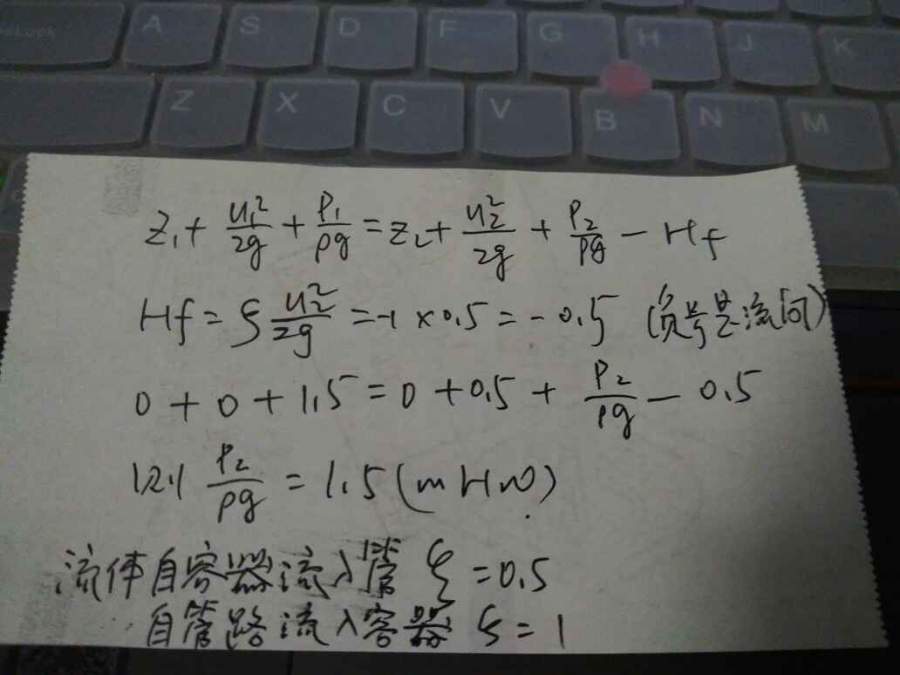 A S D F G H J K
Z X C V B N M
Z₁ + u₁²/2g + P₁/ρg = Z₂ + u₂²/2g + P₂/ρg − Hf
Hf = ξ u₂²/2g = -1 × 0.5 = -0.5 (负号是流向)
0 + 0 + 1.5 = 0 + 0.5 + P₂/ρg − 0.5
P₂/ρg = 1.5 (mH₂O)
流体自容器流入管 ξ = 0.5
自管路流入容器 ξ = 1